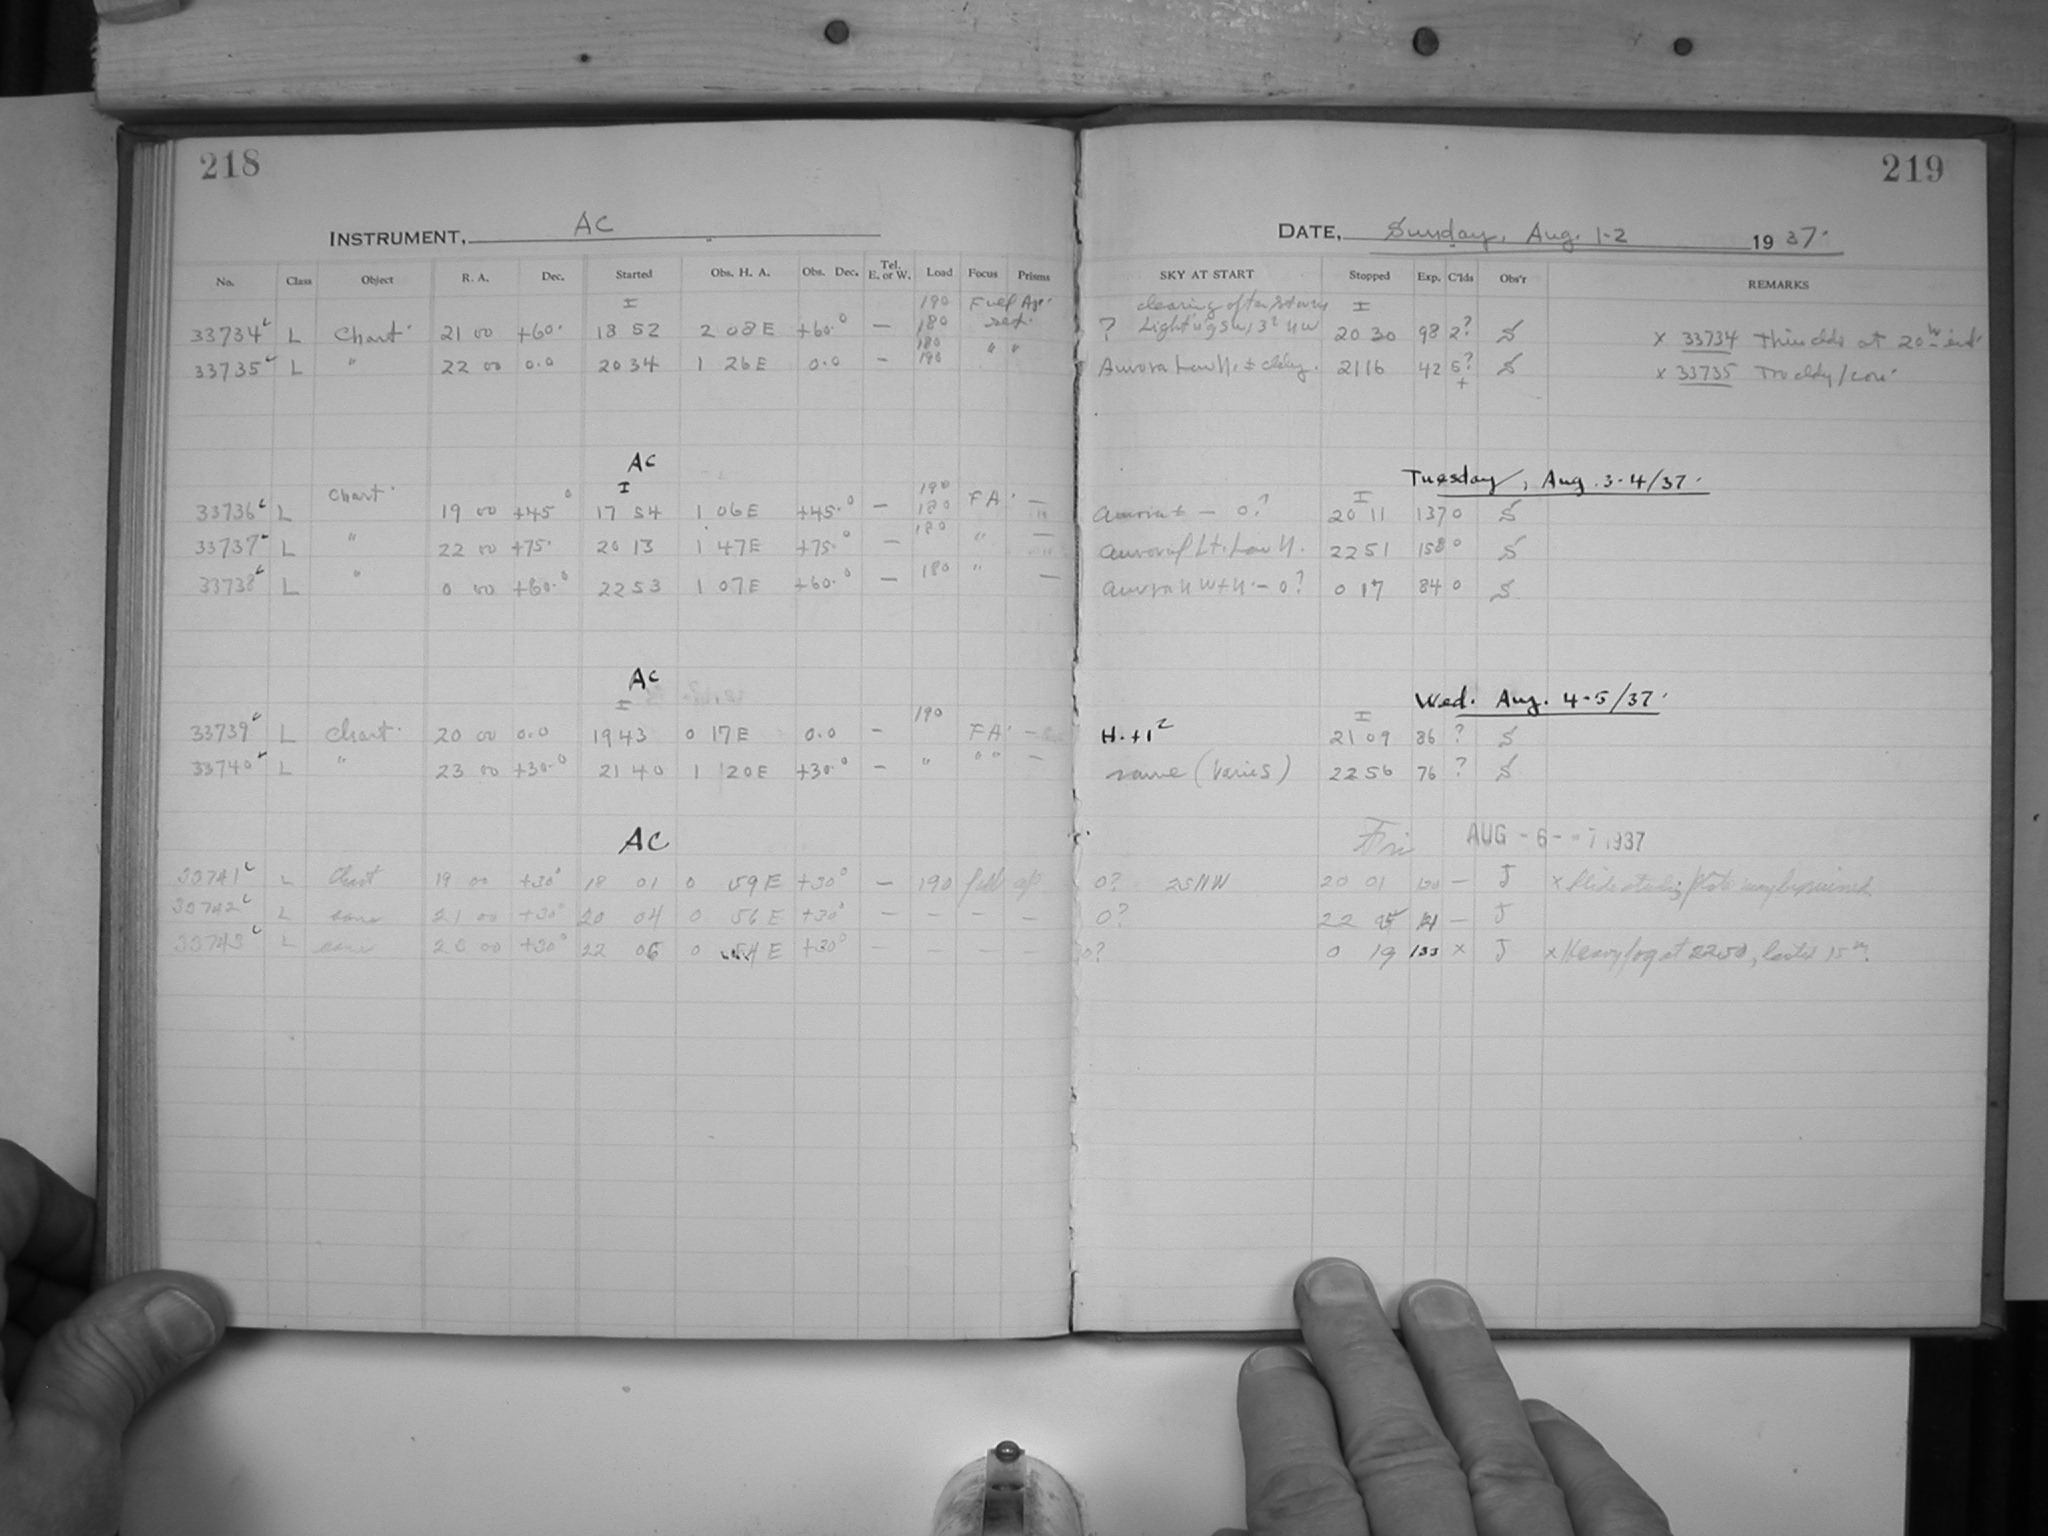 218
INSTRUMENT, AC
No. Class Object R. A. Dec. Started Obs. H. A. Obs. Dec. Tel. E. or W. Load Focus Prisms
I 190
33734 L Chart 21 00 +60. 18 52 2 08 E +60.0 — 180
33735 L " 22 00 0.0 20 34 1 26 E 0.0 - 190 " "
AC
I 190
33736 L Chart 19 00 +45 0 17 54 1 06 E +45.0 — 180 FA —
33737 L " 22 00 +75. 20 13 1 47 E +75.0 — 180 " —
33738 L " 0 00 +60.0 22 53 1 07 E +60.0 — 180 " —
AC
I
33739 L Chart 20 00 0.0 19 43 0 17 E 0.0 - 190 FA —
33740 L " 23 00 +30.0 21 40 1 20 E +30.0 — " " " —
AC
33741 L Chart 19 00 +30° 18 01 0 59 E +30° — 190 full ap
33742 L same 21 00 +30° 20 04 0 56 E +30° — — — —
33743 L same 23 00 +30° 22 06 0 54 E +30° — — — —
219
DATE, Sunday, Aug. 1-2 1937.
SKY AT START Stopped Exp. C'lds Obs'r REMARKS
clearing after storm I
? 20 30 98 2? S x 33734 Thin clds at 20
Aurora Low N. ± cldy. 21 16 42 5? + S x 33735 Too cldy
Tuesday, Aug. 3-4/37.
I
Aurora ± — 0? 20 11 137 0 S
Auroral Lt. Low N. 22 51 158 0 S
Aurora NW + N. — 0? 0 17 84 0 S
Wed. Aug. 4-5/37.
I
H. +1² 21 09 86 ? S
same (varies) 22 56 76 ? S
Fri AUG -6- -7 1937
0? 25 NW 20 01 120 — J x
0? 22 05 121 — J
0? 0 19 133 x J x Heavy fog at 2250, lasted 15m.